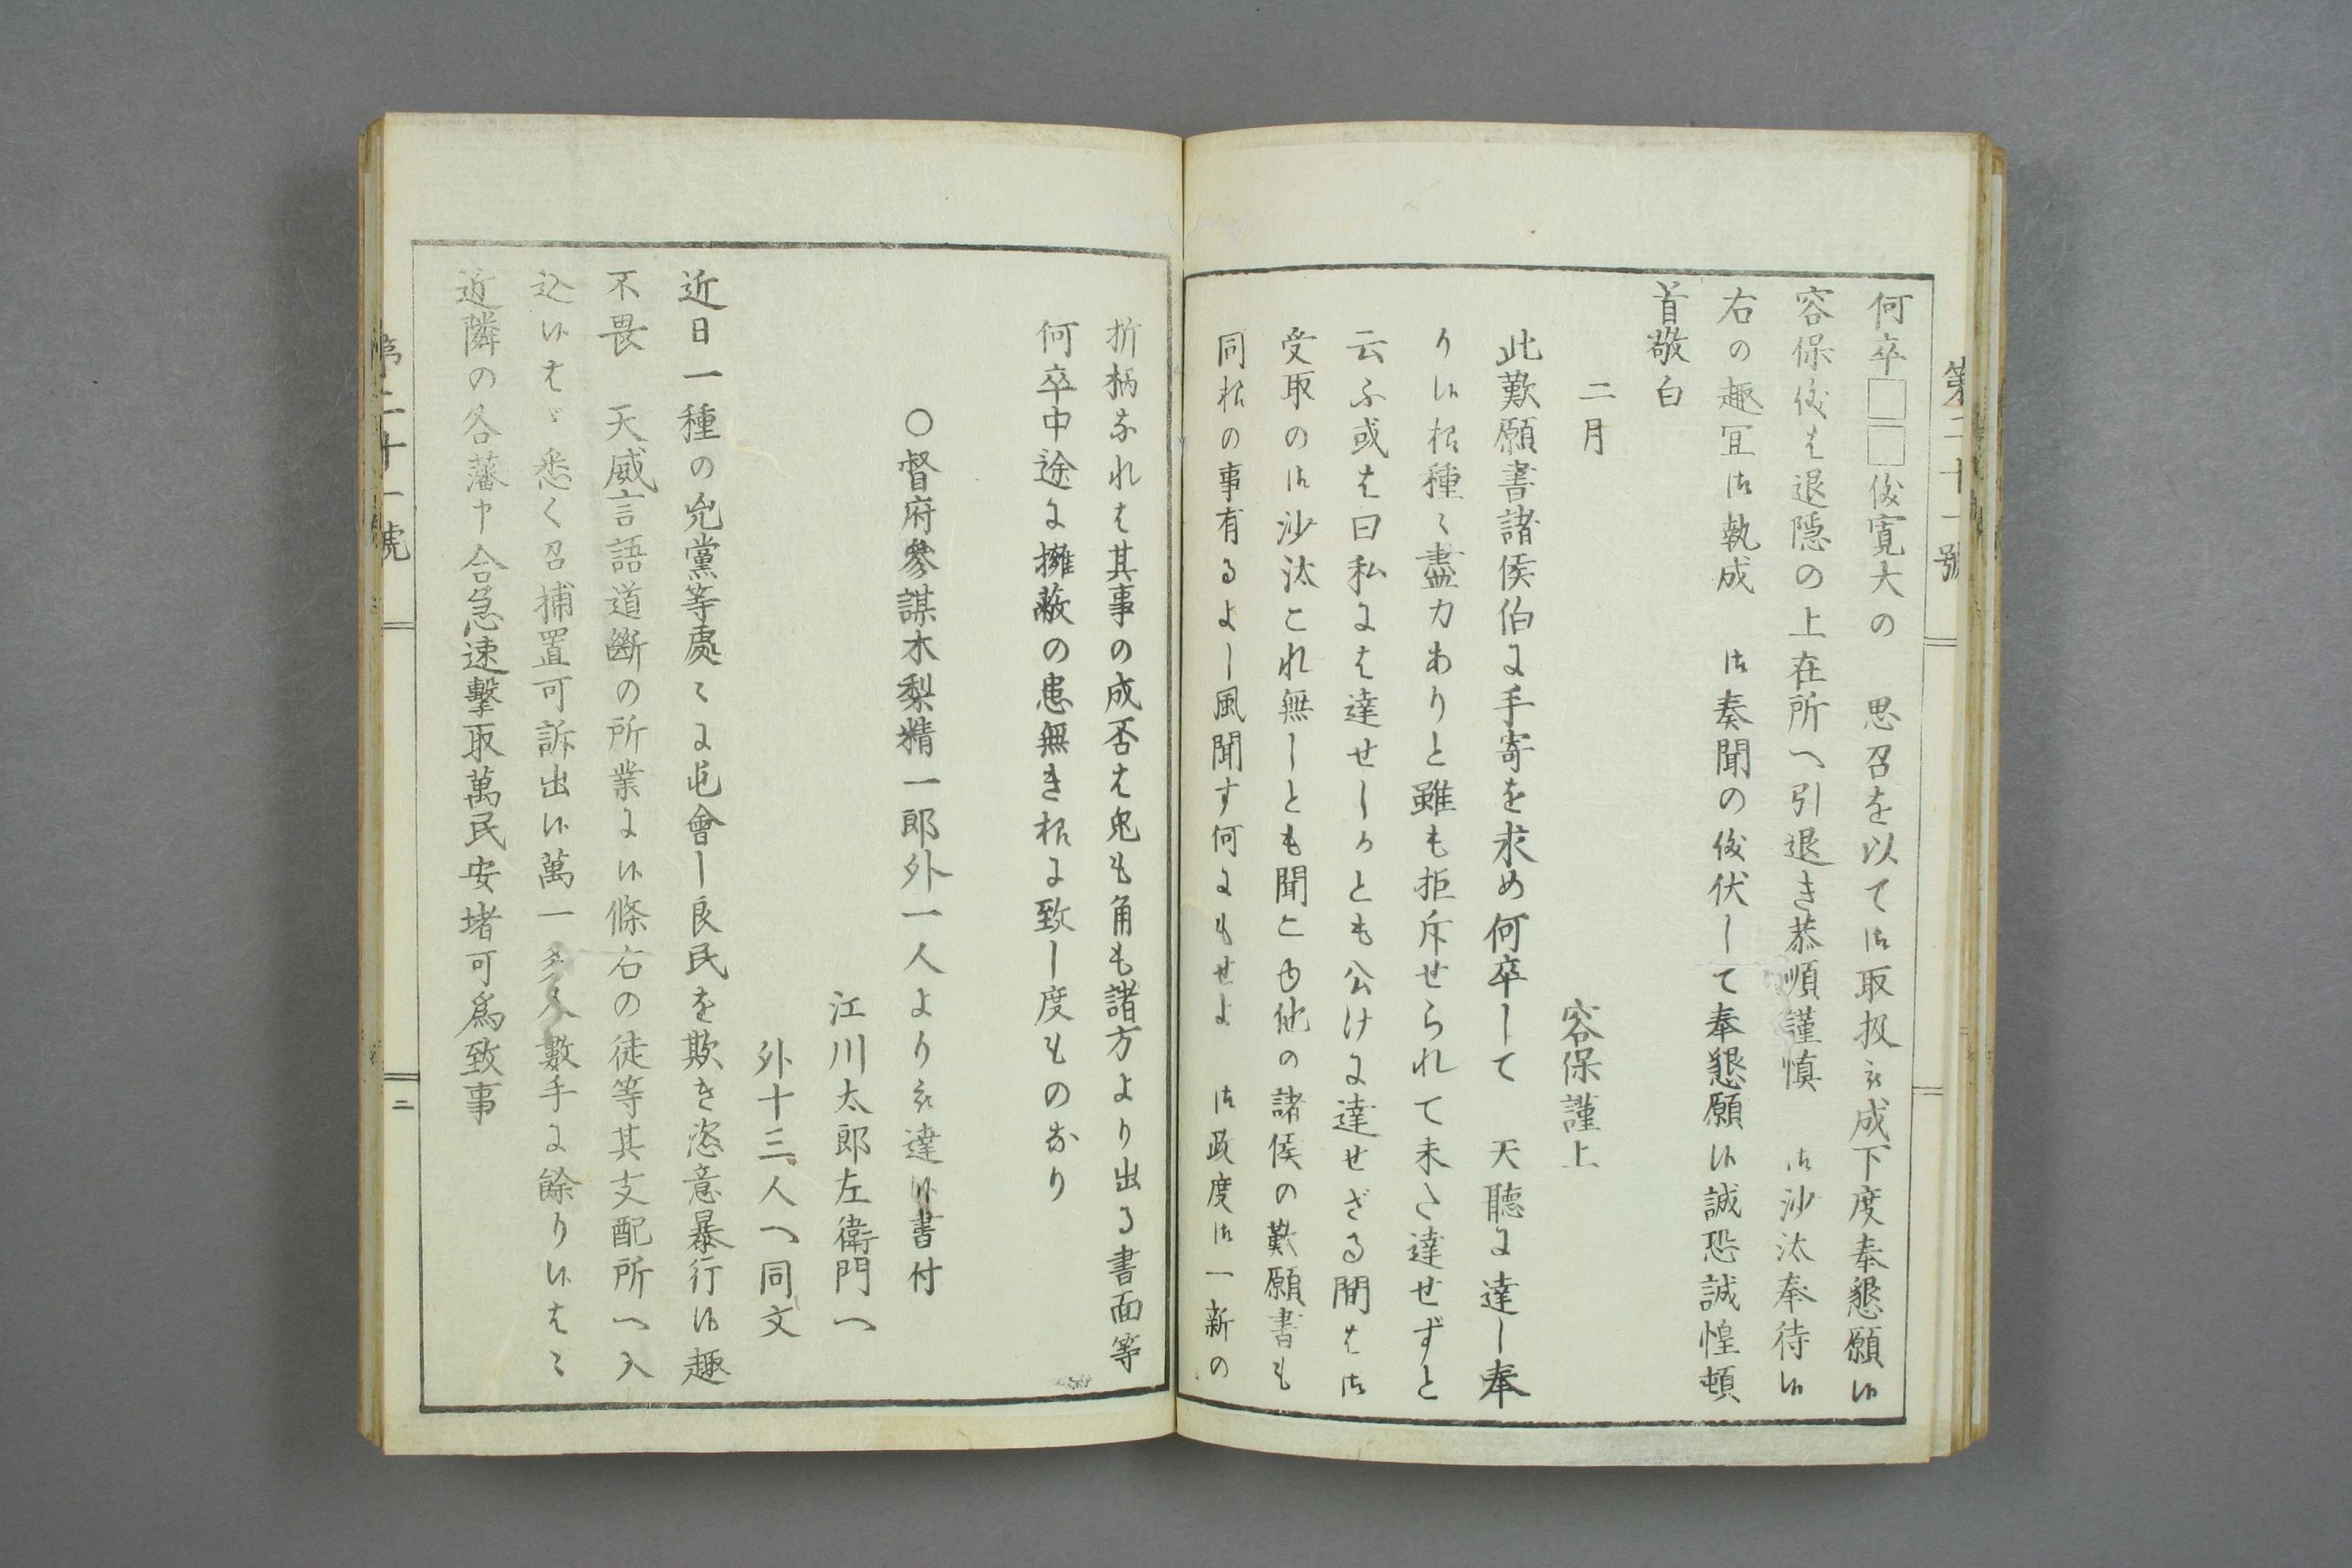 第二十一號
何卒□□儀寛大の　思召を以て御取扱被成下度奉懇願候
容保儀は退隠の上在所へ引退き恭順謹慎　御沙汰奉待候
右の趣冝御執成　御奏聞の儀伏して奉懇願候誠恐誠惶頓
首敬白
二月
容保謹上
此歎願書諸侯伯に手寄を求め何卒して　天聽に達し奉
り候様種々盡力ありと雖も拒斥せられて未た達せずと
云ふ或は曰私には達せしかとも公けに達せざる間は御
受取の御沙汰これ無しとも聞こゆ他の諸侯の歎願書も
同様の事有るよし風聞す何にもせよ　御政度御一新の
折柄なれは其事の成否は兎も角も諸方より出る書面等
何卒中途に擁蔽の患無き様に致し度ものなり
○督府參謀木梨精一郎外一人より被達候書付
江川太郎左衛門へ
外十三人へ同文
近日一種の兇黨等處々に屯會し良民を欺き恣意暴行候趣
不畏　天威言語道斷の所業に候條右の徒等其支配所へ入
込候はゞ悉く召捕置可訴出候萬一多人數手に餘り候はゞ
近隣の各藩申合急速擊取萬民安堵可爲致事
第二十一號
二